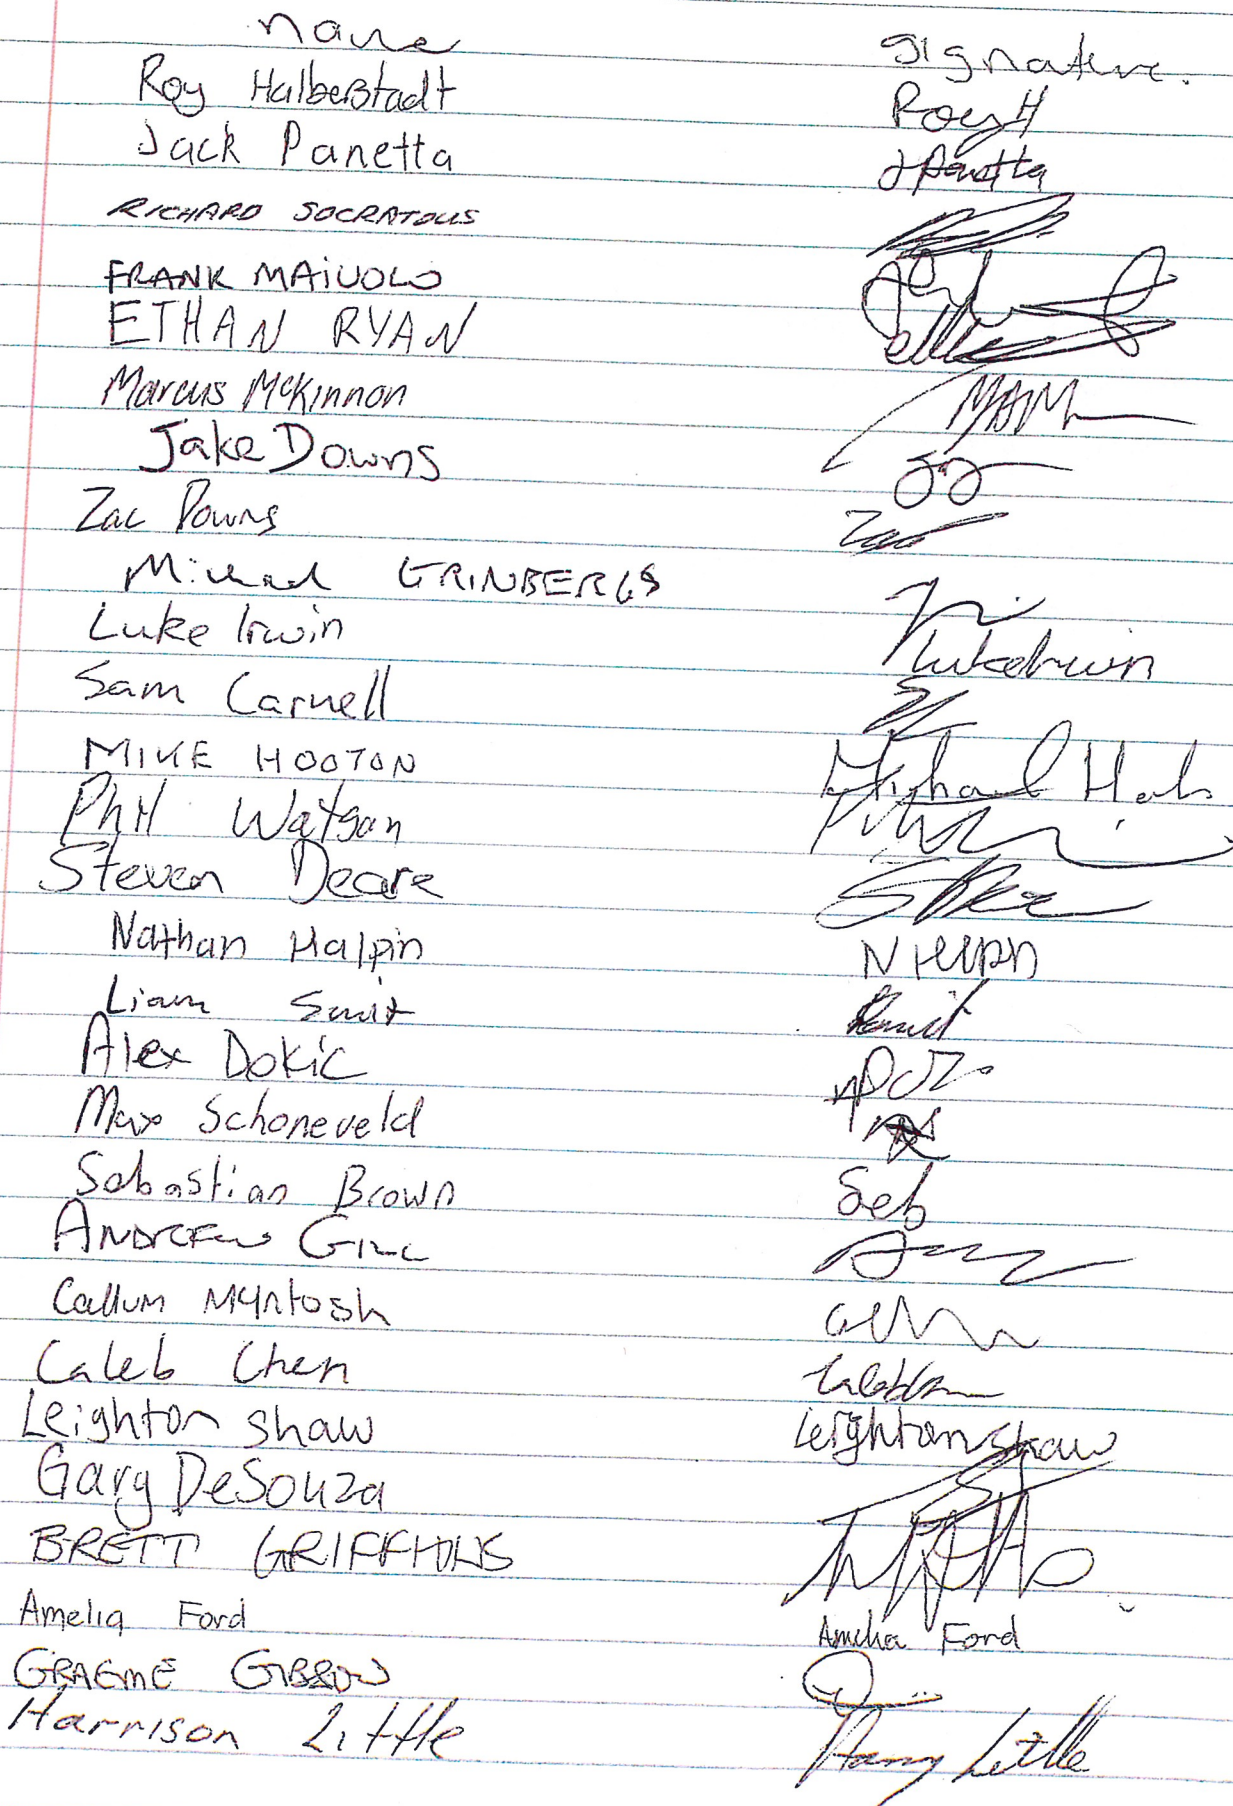 name signature.
Roy Halberstadt Roy H
Jack Panetta J Panetta
RICHARD SOCRATOUS
FRANK MAIUOLO
ETHAN RYAN
Marcus McKinnon MAM
Jake Downs JD
Zac Downs Zac
Michael GRINBERGS
Luke Irwin Luke Irwin
Sam Carnell
MIKE HOOTON Michael
Phil Watson
Steven Deare
Nathan Halpin N Halpin
Liam Smit
Alex Dokic
Max Schoneveld
Sebastian Brown Seb
ANDREW GILL
Callum McIntosh
Caleb Chen
Leighton Shaw Leighton Shaw
Gary DeSouza
BRETT GRIFFITHS
Amelia Ford Amelia Ford
GRAEME GIBSON
Harrison Little Harry Little